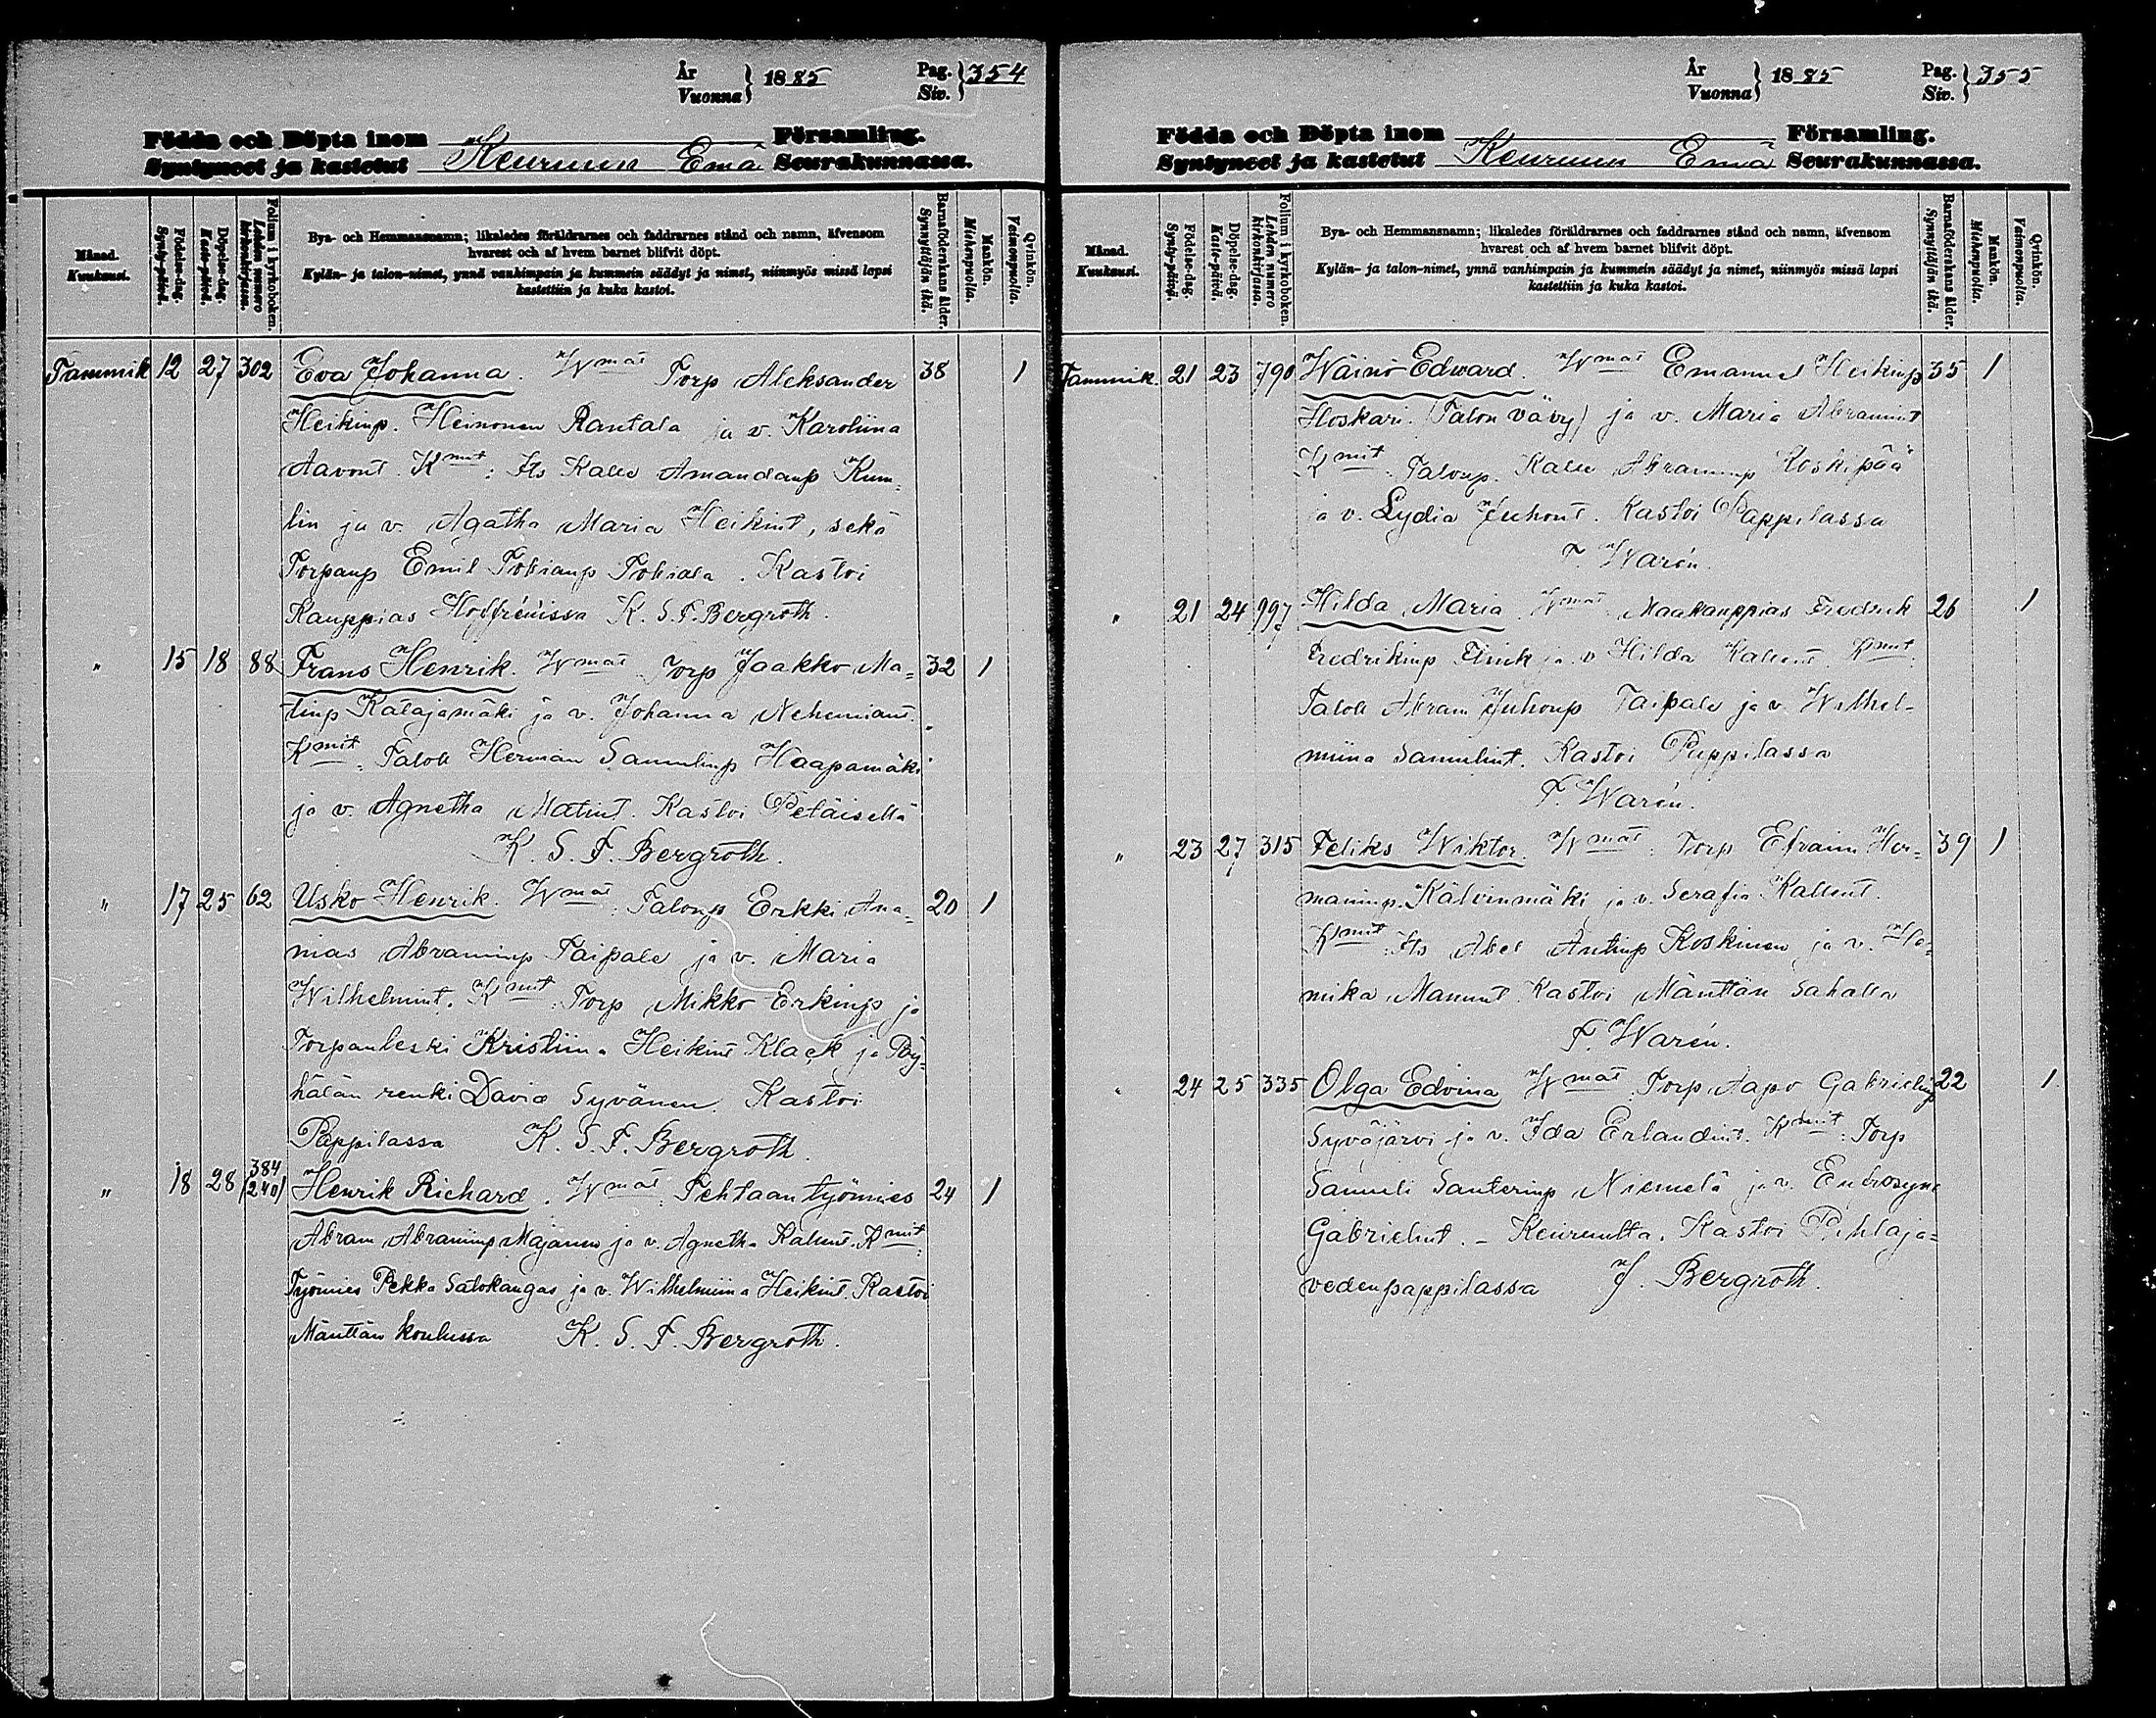 År
Vuonna } 1885
Pag.
Siv. } 354
Födda och Döpta inom Församling.
Syntyneet ja kastetut Keuruun Emä Seurakunnassa.
Månad.
Kuukausi.
Födelse-dag.
Synty-päivä.
Döpelse-dag.
Kaste-päivä.
Folium i kyrkoboken.
Lehden numero kirkonkirjassa.
Bya- och Hemmansnamn; likaledes föräldrarnes och faddrarnes stånd och namn, äfvensom
hvarest och af hvem barnet blifvit döpt.
Kylän- ja talon-nimet, ynnä vanhimpain ja kummein säädyt ja nimet, niinmyös missä lapsi
kastettiin ja kuka kastoi.
Barnaföderskans ålder.
Synnyttäjän ikä.
Mankön.
Miehenpuolia.
Qvinkön.
Vaimonpuolia.
Tammik 12 27 302 Eva Johanna. Wmat Torp Aleksander 38 1
Heikinp. Heinonen Rantala ja v. Karoliina
Aavont. Kmit: Its Kalle Amandanp Kum-
lin ja v. Agatha Maria Heikint, sekä
Torpanp Emil Tobianp Tobiala. Kastoi
Kauppias Hoffrénissa K. S. F. Bergroth.
" 15 18 88 Frans Henrik. Wmat Torp Jaakko Ma= 32 1
tinp Kalajamäki ja v. Johanna Nehemiant.
Kmit: Taloll Herman Samulinp Haapamäki
ja v. Agnetha Matint. Kastoi Petäisellä
K. S. F. Bergroth.
" 17 25 62 Usko Henrik. Wmat: Talonp Erkki Ana= 20 1
nias Abraminp Taipale ja v. Maria
Wilhelmint. Kmit: Torp Mikko Erkinp ja
Torpanleski Kristiina Heikint Klack ja Pöy=
hälän renki David Syvänen. Kastoi
Pappilassa K. S. F. Bergroth.
" 18 28 384 (240) Henrik Richard. Wmat: Tehtaan työmies 24 1
Abram Abraminp Majanen ja v. Agnetha Kallent. Kmit:
Työmies Pekka Salokangas ja v. Wilhelmiina Heikint. Kastoi
Mänttän koulussa K. S. F. Bergroth.
År
Vuonna } 1885
Pag.
Siv. } 355
Födda och Döpta inom Församling.
Syntyneet ja kastetut Keuruun Emä Seurakunnassa.
Månad.
Kuukausi.
Födelse-dag.
Synty-päivä.
Döpelse-dag.
Kaste-päivä.
Folium i kyrkoboken.
Lehden numero kirkonkirjassa.
Bya- och Hemmansnamn; likaledes föräldrarnes och faddrarnes stånd och namn, äfvensom
hvarest och af hvem barnet blifvit döpt.
Kylän- ja talon-nimet, ynnä vanhimpain ja kummein säädyt ja nimet, niinmyös missä lapsi
kastettiin ja kuka kastoi.
Barnaföderskans ålder.
Synnyttäjän ikä.
Mankön.
Miehenpuolia.
Qvinkön.
Vaimonpuolia.
Tammik. 21 23 790 Wäinö Edward. Wmat Emanuel Heikinp 35 1
Hoskari. (Talon vävy) ja v. Maria Abramint
Kmit: Talonp. Kalle Abraminp Koskipää
ja v. Lydia Juhont. Kastoi Pappilassa
F. Warén.
" 21 24 997 Hilda Maria. Wmat Maakauppias Fredrik 26 1
Fredrikinp Flink ja v Hilda Kallent. Kmit:
Taloll Abram Juhonp Taipale ja v. Wilhel-
miina Samulint. Kastoi Pappilassa
F. Warén.
" 23 27 315 Feliks Wiktor. Wmat: Torp Efraim Her= 39 1
maninp. Kälvinmäki ja v. Serafia Kallent.
Kmit: Its Abel Antinp Koskinen ja v. He=
mika Manunt Kastoi Mänttän Sahalla
F. Warén.
" 24 25 335 Olga Edvina Wmat: Torp. Aapo Gabrielinp 22 1
Syväjärvi ja v. Ida Erlandint. Kmit: Torp
Samuli Santerinp Niemelä ja v. Eufrosyne
Gabrielint. - Keuruulta. Kastoi Pihlaja=
vedenpappilassa J. Bergroth.